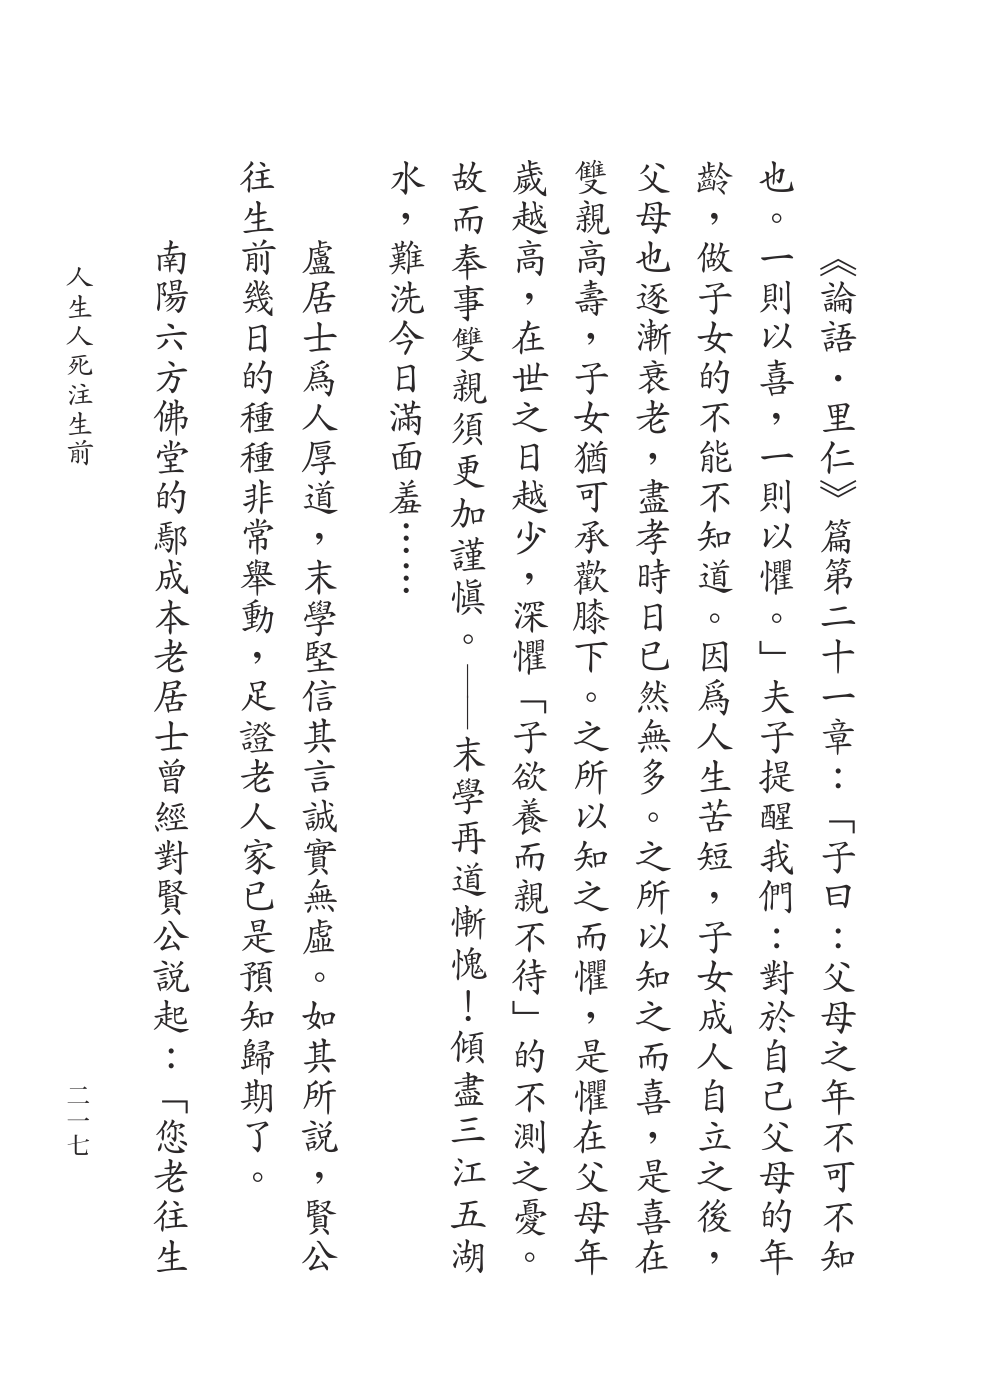 《論語．里仁》篇第二十一章：「子曰：父母之年不可不知
也。一則以喜，一則以懼。」夫子提醒我們：對於自己父母的年
齡，做子女的不能不知道。因爲人生苦短，子女成人自立之後，
父母也逐漸衰老，盡孝時日已然無多。之所以知之而喜，是喜在
雙親高壽，子女猶可承歡膝下。之所以知之而懼，是懼在父母年
歲越高，在世之日越少，深懼「子欲養而親不待」的不測之憂。
故而奉事雙親須更加謹愼。——末學再道慚愧！傾盡三江五湖
水，難洗今日滿面羞……
盧居士爲人厚道，末學堅信其言誠實無虛。如其所説，賢公
往生前幾日的種種非常舉動，足證老人家已是預知歸期了。
南陽六方佛堂的鄢成本老居士曾經對賢公説起：「您老往生
人生人死注生前
二一七